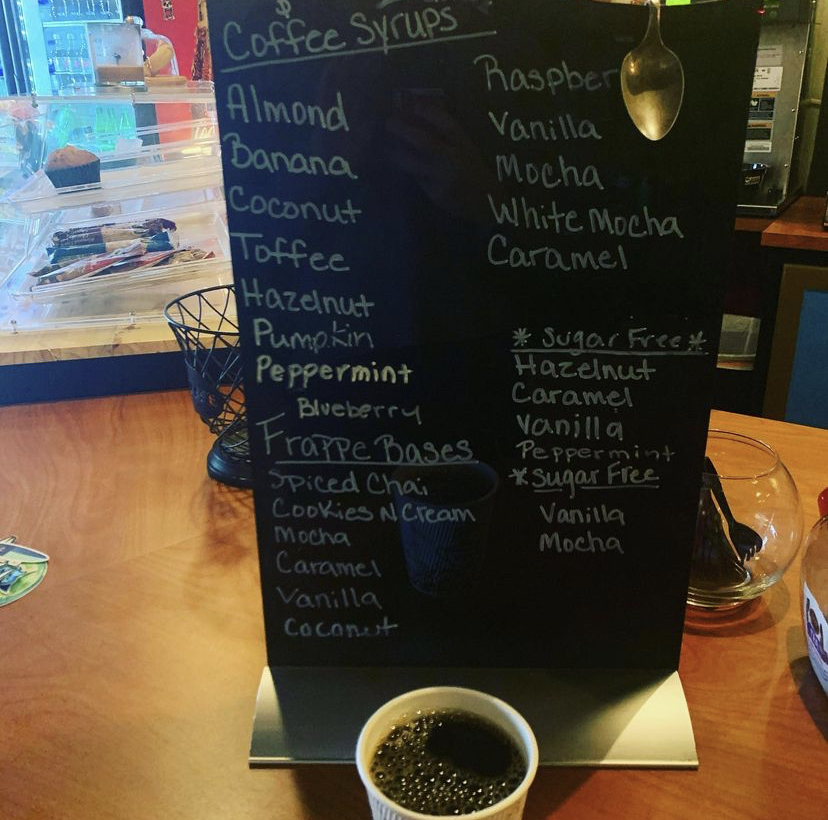 $
Coffee Syrups
Almond
Banana
Coconut
Toffee
Hazelnut
Pumpkin
Peppermint
Blueberry
Raspber
Vanilla
Mocha
White Mocha
Caramel
Frappe Bases
Spiced Chai
Cookies N Cream
Mocha
Caramel
Vanilla
Coconut
* Sugar Free *
Hazelnut
Caramel
Vanilla
Peppermint
*Sugar Free
Vanilla
Mocha